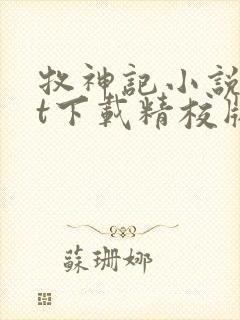 牧神記小說
t下載精校版
蘇珊娜